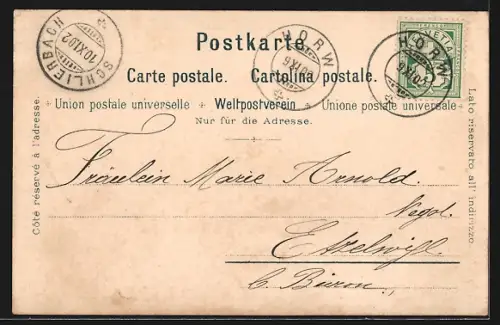 SCHLIERBACH
10.XI.02
HORW
9.XI.02
HORW
9.XI.02
HELVETIA
Postkarte.
Carte postale. Cartolina postale.
Union postale universelle + Weltpostverein + Unione postale universale
Nur für die Adresse.
Côté réservé à l'adresse.
Lato riservato all' indirizzo
Fräulein Marie Arnold.
Negot.
Etzelwyl.
b. Büron.